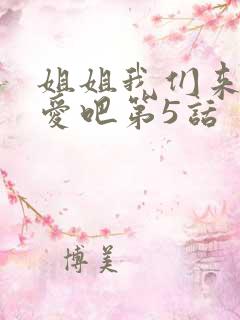 姐姐我们来
愛吧第5話
博美